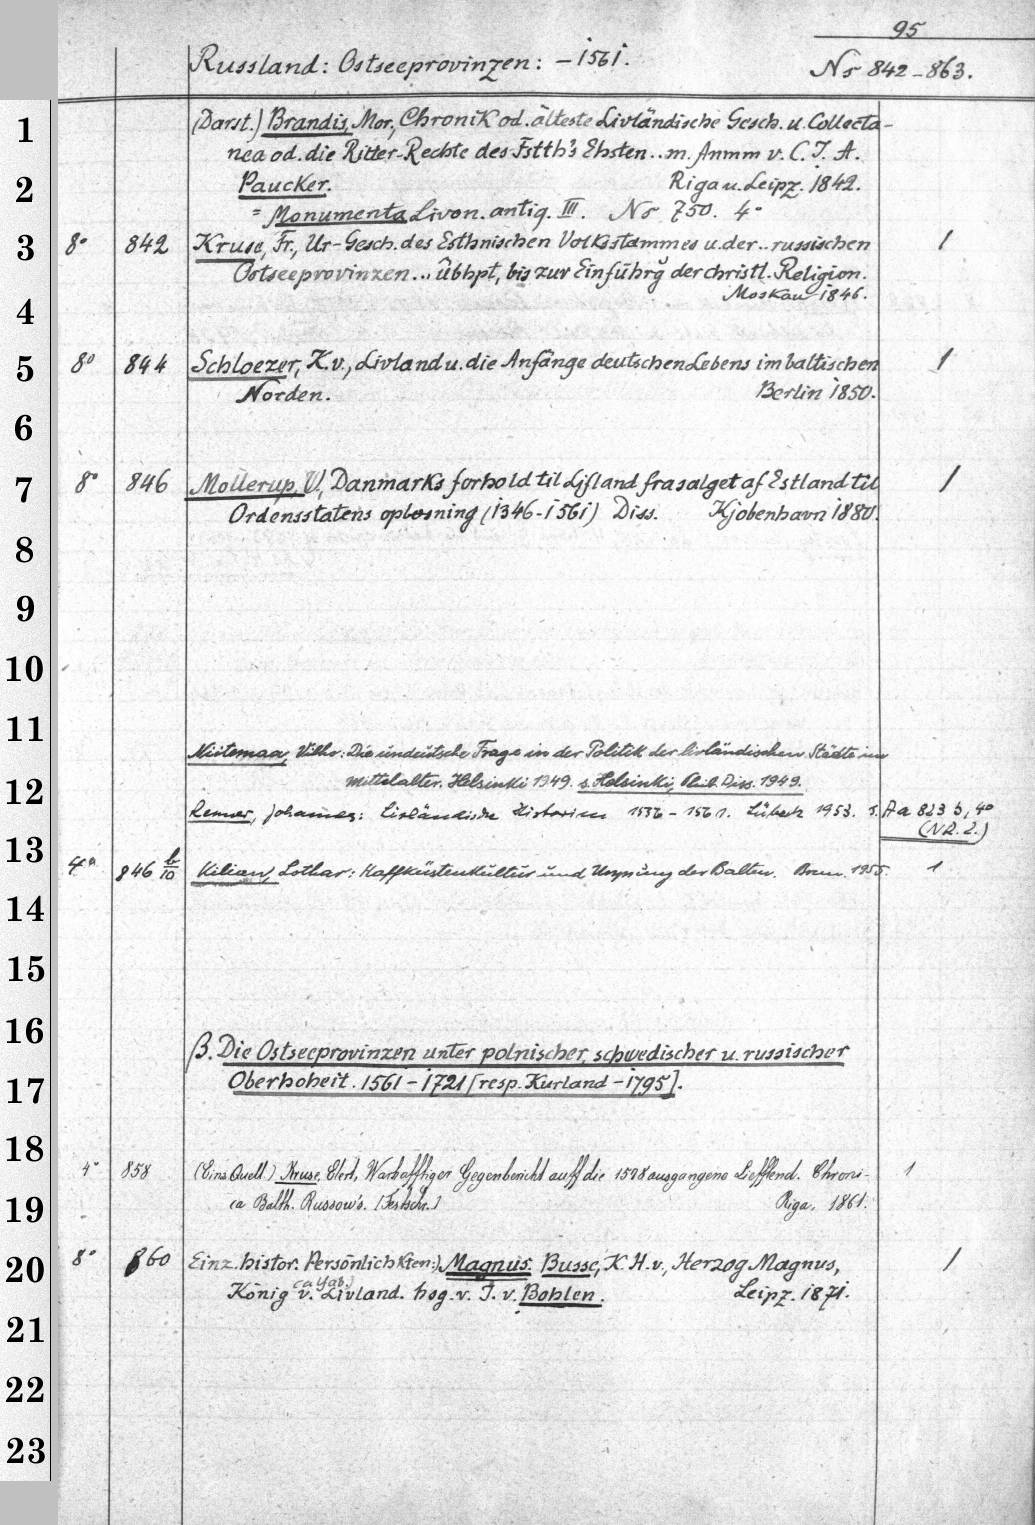 95
Russland: Ostseeprovinzen: – 1561.
Nr 842–863.
1
(Darst.) Brandis, Mor., Chronik od. älteste Livländische Gesch. u. Collecta-
nea od. die Ritter-Rechte des Fstth's Ehsten .. m. Anmm v. C. J. A.
2
Paucker. Riga u. Leipz. 1842.
= Monumenta Livon. antiq. III. Nr 750. 4°
3
8° 842 Kruse, Fr., Ur-Gesch. des Esthnischen Volksstammes u. der .. russischen 1
Ostseeprovinzen... übhpt, bis zur Einführg der christl. Religion.
Moskau 1846.
4
5
8° 844 Schloezer, K. v., Livland u. die Anfänge deutschen Lebens im baltischen 1
Norden. Berlin 1850.
6
7
8° 846 Mollerup, W., Danmarks forhold til Lifland fra salget af Estland til 1
Ordensstatens opløsning (1346–1561) Diss. Kjobenhavn 1880.
8
9
10
11
Niitemaa, Vilho: Die undeutsche Frage in der Politik der livländischen Städte im
12
Mittelalter. Helsinki 1949. s. Helsinki, Phil. Diss. 1949.
Renner, Johannes: Livländische Historien 1556–1561. Lübeck 1953. s. Aa 823 b, 4°
(NR. 2.)
13
4° 846 b/10 Kilian, Lothar: Haffküstenkultur und Ursprung der Balten. Bonn. 1955 1
14
15
16
β. Die Ostseeprovinzen unter polnischer, schwedischer u. russischer
17
Oberhoheit. 1561–1721 [resp. Kurland –1795].
18
4° 858 (Eins. Quell.) Kruse, Elert, Warhafftiger Gegenbericht auff die 1578 ausgangene Liefflend. Chroni- 1
19
ca Balth. Russow's. [Festschr.] Riga, 1861.
20
8° 860 Einz. histor. Persönlichkten:) Magnus. Busse, K. H. v., Herzog Magnus, 1
König v. Livland. hsg. v. J. v. Bohlen. Leipz. 1871.
21
22
23